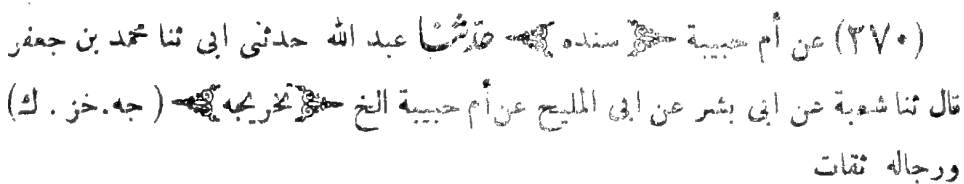 (٣٧٠) عن أم حبيبة ﴿ سنده ﴾ حدّثنا عبد الله حدثنى ابى ثنا محمد بن جعفر
قال ثنا شعبة عن ابى بشر عن ابى المليح عن أم حبيبة الخ ﴿ تخريجه ﴾ ( جه . خز . ك)
ورجاله ثقات